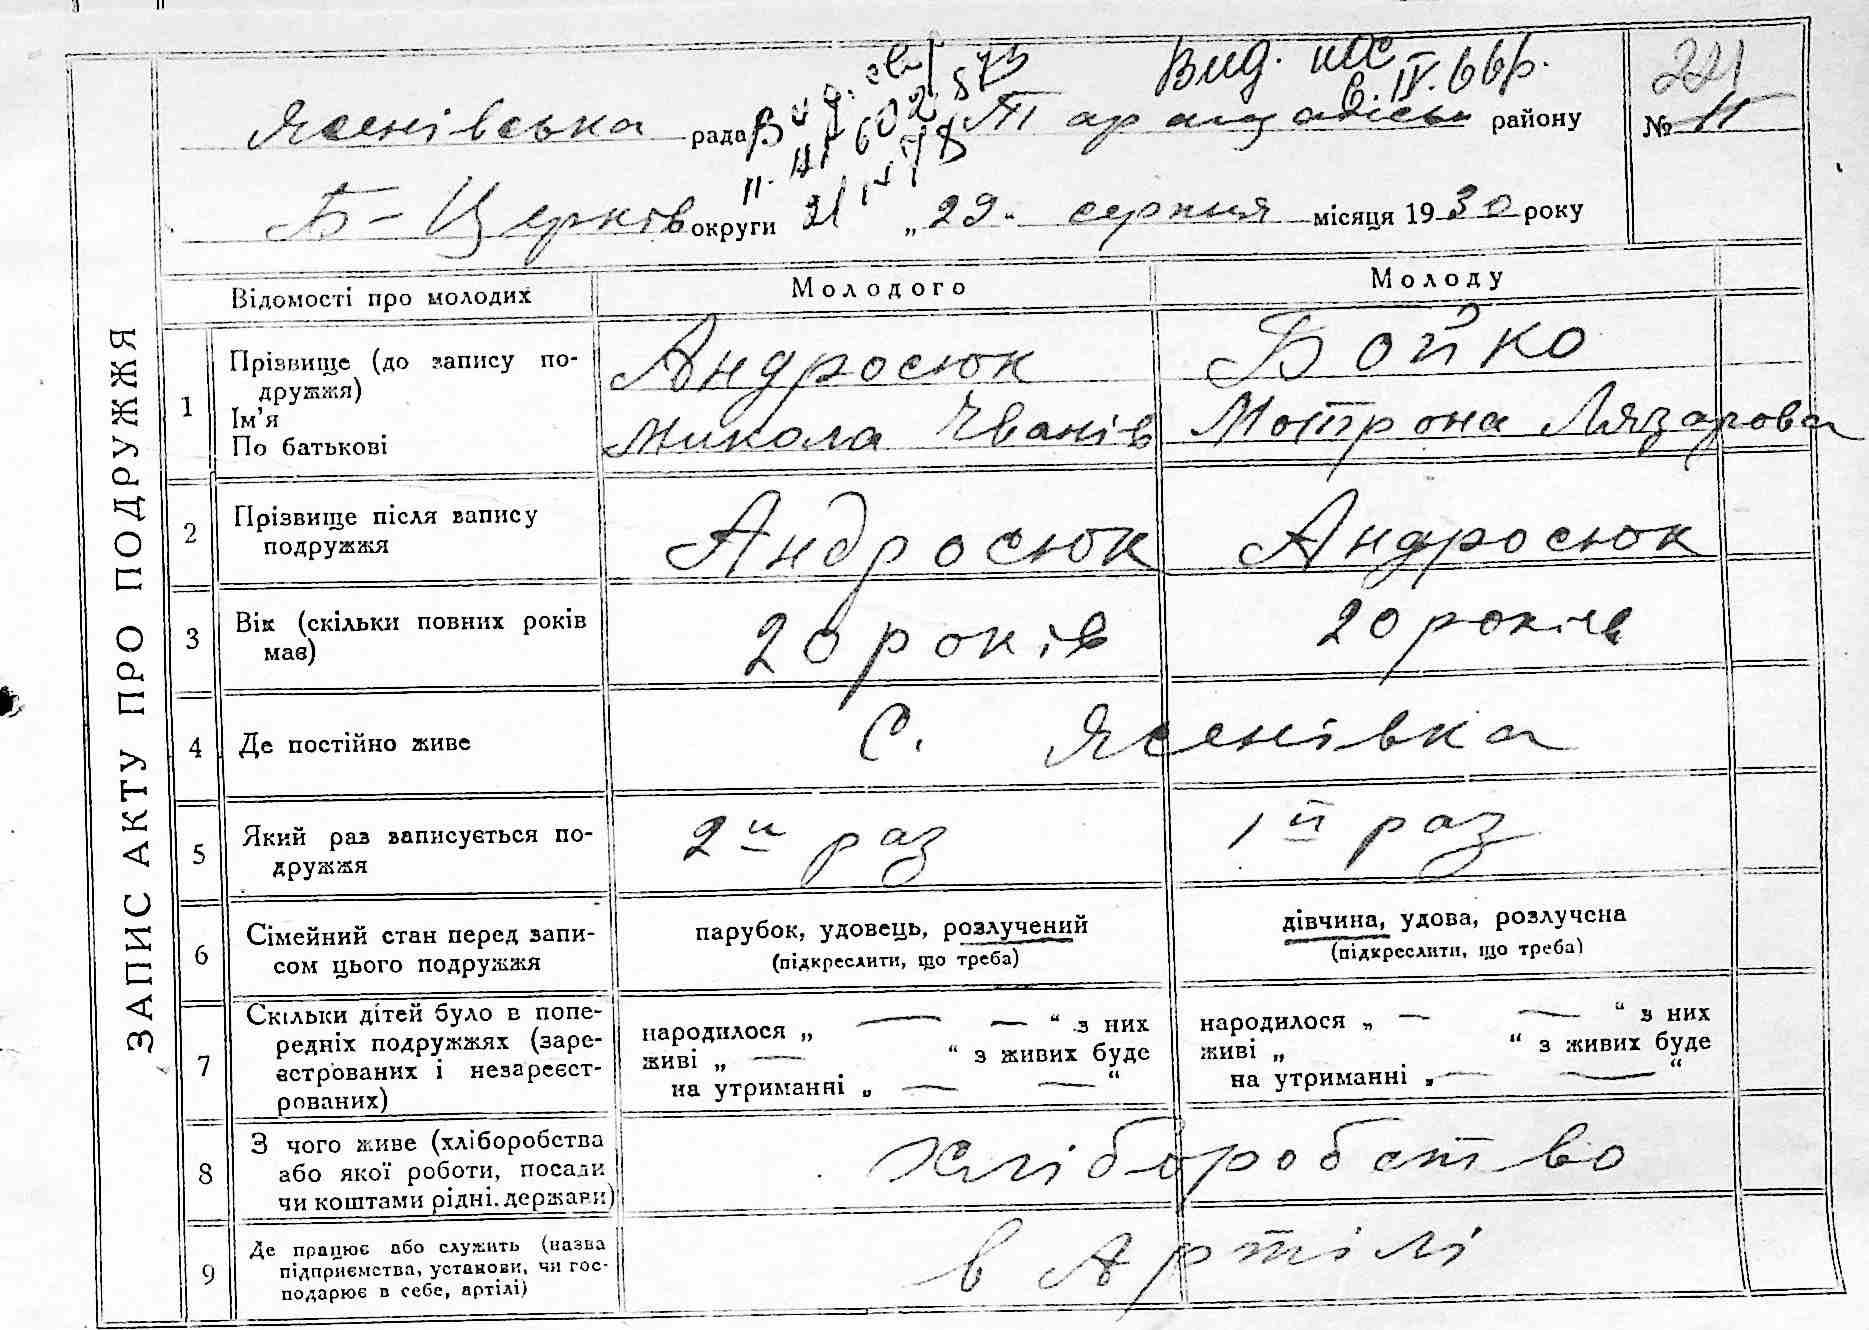 Вид. пос
6. IV. 66р.
221
Ясенівська рада Таращанськ району № 11
Б-Церків округи „29" серпня місяця 1930 року
Відомості про молодих Молодого Молоду
ЗАПИС АКТУ ПРО ПОДРУЖЖЯ
1 Прізвище (до запису по-
дружжя)
Ім'я
По батькові
Андросюк Бойко
Микола Йванів Мотрона Лязарова
2 Прізвище після запису
подружжя
Андросюк Андросюк
3 Вік (скільки повних років
має)
20 років 20 років
4 Де постійно живе С. Ясенівка
5 Який раз записується по-
дружжя
2й раз 1й раз
6 Сімейний стан перед запи-
сом цього подружжя
парубок, удовець, розлучений
(підкреслити, що треба)
дівчина, удова, розлучена
(підкреслити, що треба)
7 Скільки дітей було в попе-
редніх подружжях (заре-
єстрованих і незареєст-
рованих)
народилося „ — — “ з них
живі „ — “ з живих буде
на утриманні „ — — “
народилося „ — — “ з них
живі „ “ з живих буде
на утриманні „ — — “
8 З чого живе (хліборобства
або якої роботи, посади
чи коштами рідні, держави)
Хліборобство
9 Де працює або служить (назва
підприємства, установи, чи гос-
подарює в себе, артілі)
в Артілі